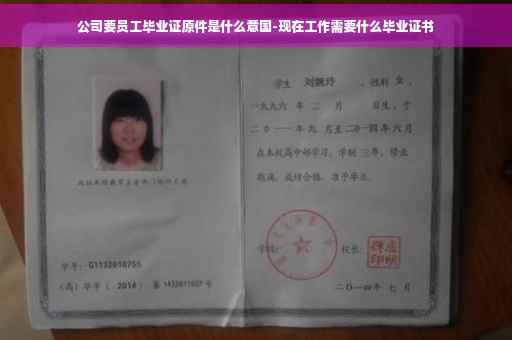 公司要员工毕业证原件是什么意图-现在工作需要什么毕业证书
学生 刘婉玲 ，性别 女 ，
一九九六 年 二 月 日生，于
二〇一一 年 九 月至 二〇一四 年 六 月
在本校高中部学习，学制 三 年，修业
期满，成绩合格，准予毕业。
学校： 校长：
学号： G1132010755
（高）毕字（ 2014 ）第 1432011607 号
二〇一四年 七 月